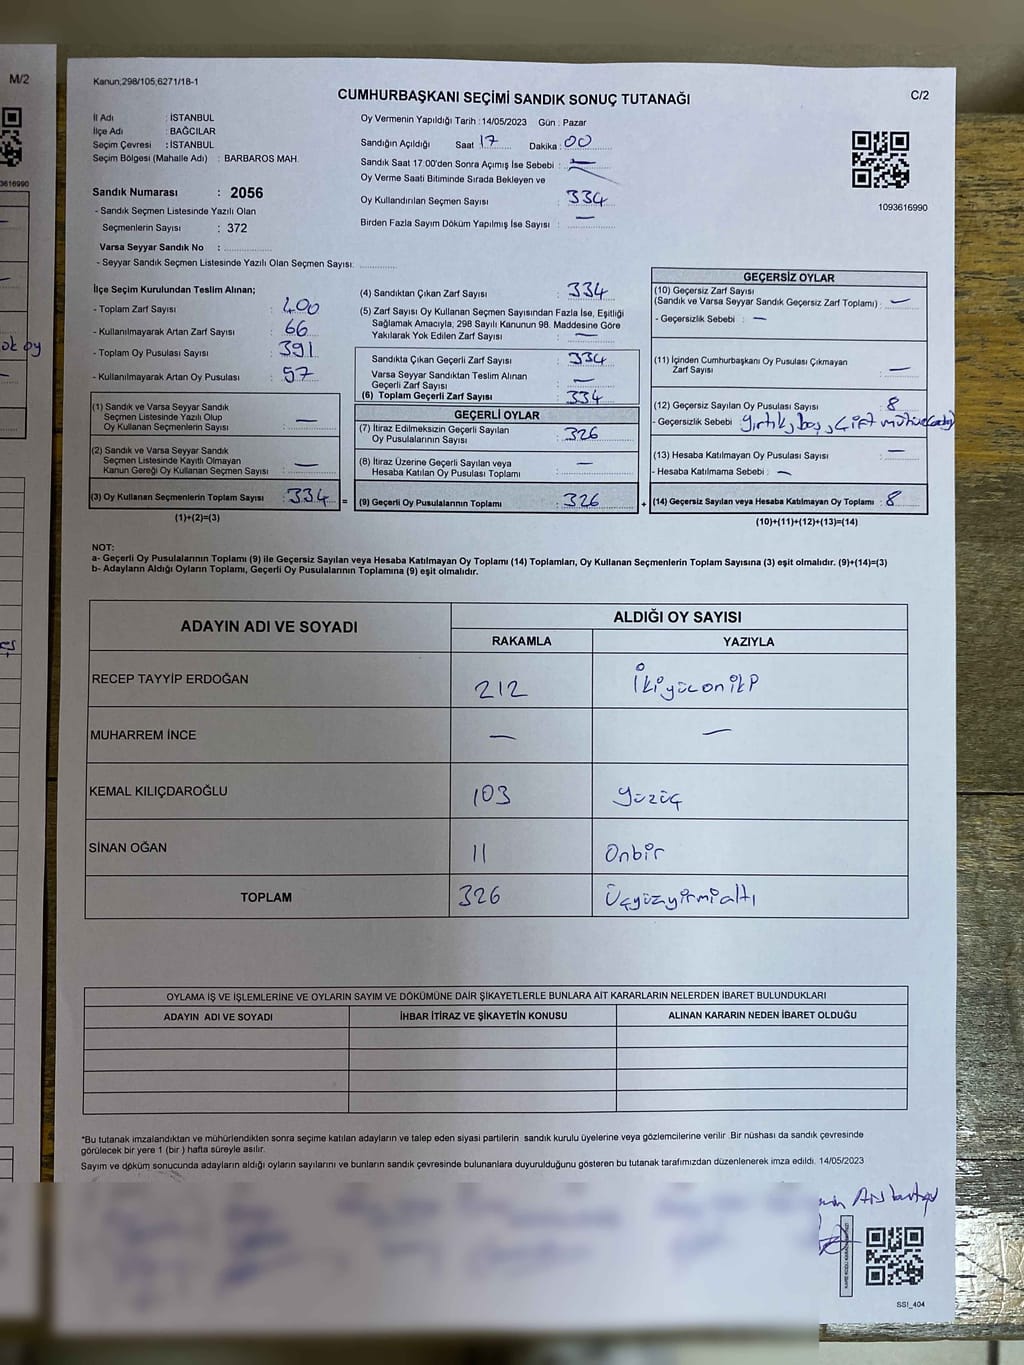 M/2
3616990
ok oy
Kanun;298/105;6271/18-1
CUMHURBAŞKANI SEÇİMİ SANDIK SONUÇ TUTANAĞI
C/2
İl Adı : İSTANBUL
İlçe Adı : BAĞCILAR
Seçim Çevresi : İSTANBUL
Seçim Bölgesi (Mahalle Adı) : BARBAROS MAH.
Sandık Numarası : 2056
- Sandık Seçmen Listesinde Yazılı Olan
Seçmenlerin Sayısı : 372
Varsa Seyyar Sandık No :
- Seyyar Sandık Seçmen Listesinde Yazılı Olan Seçmen Sayısı:
Oy Vermenin Yapıldığı Tarih : 14/05/2023 Gün : Pazar
Sandığın Açıldığı Saat 17 Dakika : 00
Sandık Saat 17:00'den Sonra Açımış İse Sebebi : —
Oy Verme Saati Bitiminde Sırada Bekleyen ve
Oy Kullandırılan Seçmen Sayısı : 334
Birden Fazla Sayım Döküm Yapılmış İse Sayısı : —
1093616990
İlçe Seçim Kurulundan Teslim Alınan;
- Toplam Zarf Sayısı : 400
- Kullanılmayarak Artan Zarf Sayısı : 66
- Toplam Oy Pusulası Sayısı : 391
- Kullanılmayarak Artan Oy Pusulası : 57
(1) Sandık ve Varsa Seyyar Sandık
Seçmen Listesinde Yazılı Olup
Oy Kullanan Seçmenlerin Sayısı : —
(2) Sandık ve Varsa Seyyar Sandık
Seçmen Listesinde Kayıtlı Olmayan
Kanun Gereği Oy Kullanan Seçmen Sayısı : —
(3) Oy Kullanan Seçmenlerin Toplam Sayısı : 334 =
(1)+(2)=(3)
(4) Sandıktan Çıkan Zarf Sayısı : 334
(5) Zarf Sayısı Oy Kullanan Seçmen Sayısından Fazla İse, Eşitliği
Sağlamak Amacıyla, 298 Sayılı Kanunun 98. Maddesine Göre
Yakılarak Yok Edilen Zarf Sayısı : —
Sandıkta Çıkan Geçerli Zarf Sayısı : 334
Varsa Seyyar Sandıktan Teslim Alınan
Geçerli Zarf Sayısı : —
(6) Toplam Geçerli Zarf Sayısı : 334
GEÇERLİ OYLAR
(7) İtiraz Edilmeksizin Geçerli Sayılan
Oy Pusulalarının Sayısı : 326
(8) İtiraz Üzerine Geçerli Sayılan veya
Hesaba Katılan Oy Pusulası Toplamı : —
(9) Geçerli Oy Pusulalarının Toplamı : 326 +
GEÇERSİZ OYLAR
(10) Geçersiz Zarf Sayısı
(Sandık ve Varsa Seyyar Sandık Geçersiz Zarf Toplamı) : —
- Geçersizlik Sebebi : —
(11) İçinden Cumhurbaşkanı Oy Pusulası Çıkmayan
Zarf Sayısı : —
(12) Geçersiz Sayılan Oy Pusulası Sayısı : 8
- Geçersizlik Sebebi : Yırtık, boş, Çift
(13) Hesaba Katılmayan Oy Pusulası Sayısı : —
- Hesaba Katılmama Sebebi : —
(14) Geçersiz Sayılan veya Hesaba Katılmayan Oy Toplamı : 8
(10)+(11)+(12)+(13)=(14)
NOT:
a- Geçerli Oy Pusulalarının Toplamı (9) ile Geçersiz Sayılan veya Hesaba Katılmayan Oy Toplamı (14) Toplamları, Oy Kullanan Seçmenlerin Toplam Sayısına (3) eşit olmalıdır. (9)+(14)=(3)
b- Adayların Aldığı Oyların Toplamı, Geçerli Oy Pusulalarının Toplamına (9) eşit olmalıdır.
ADAYIN ADI VE SOYADI
ALDIĞI OY SAYISI
RAKAMLA YAZIYLA
RECEP TAYYİP ERDOĞAN 212 İkiyüzoniki
MUHARREM İNCE — —
KEMAL KILIÇDAROĞLU 103 Yüzüç
SİNAN OĞAN 11 Onbir
TOPLAM 326 Üçyüzyirmialtı
OYLAMA İŞ VE İŞLEMLERİNE VE OYLARIN SAYIM VE DÖKÜMÜNE DAİR ŞİKAYETLERLE BUNLARA AİT KARARLARIN NELERDEN İBARET BULUNDUKLARI
ADAYIN ADI VE SOYADI İHBAR İTİRAZ VE ŞİKAYETİN KONUSU ALINAN KARARIN NEDEN İBARET OLDUĞU
*Bu tutanak imzalandıktan ve mühürlendikten sonra seçime katılan adayların ve talep eden siyasi partilerin sandık kurulu üyelerine veya gözlemcilerine verilir. Bir nüshası da sandık çevresinde
görülecek bir yere 1 (bir ) hafta süreyle asılır.
Sayım ve döküm sonucunda adayların aldığı oyların sayılarını ve bunların sandık çevresinde bulunanlara duyurulduğunu gösteren bu tutanak tarafımızdan düzenlenerek imza edildi. 14/05/2023
SSI_404